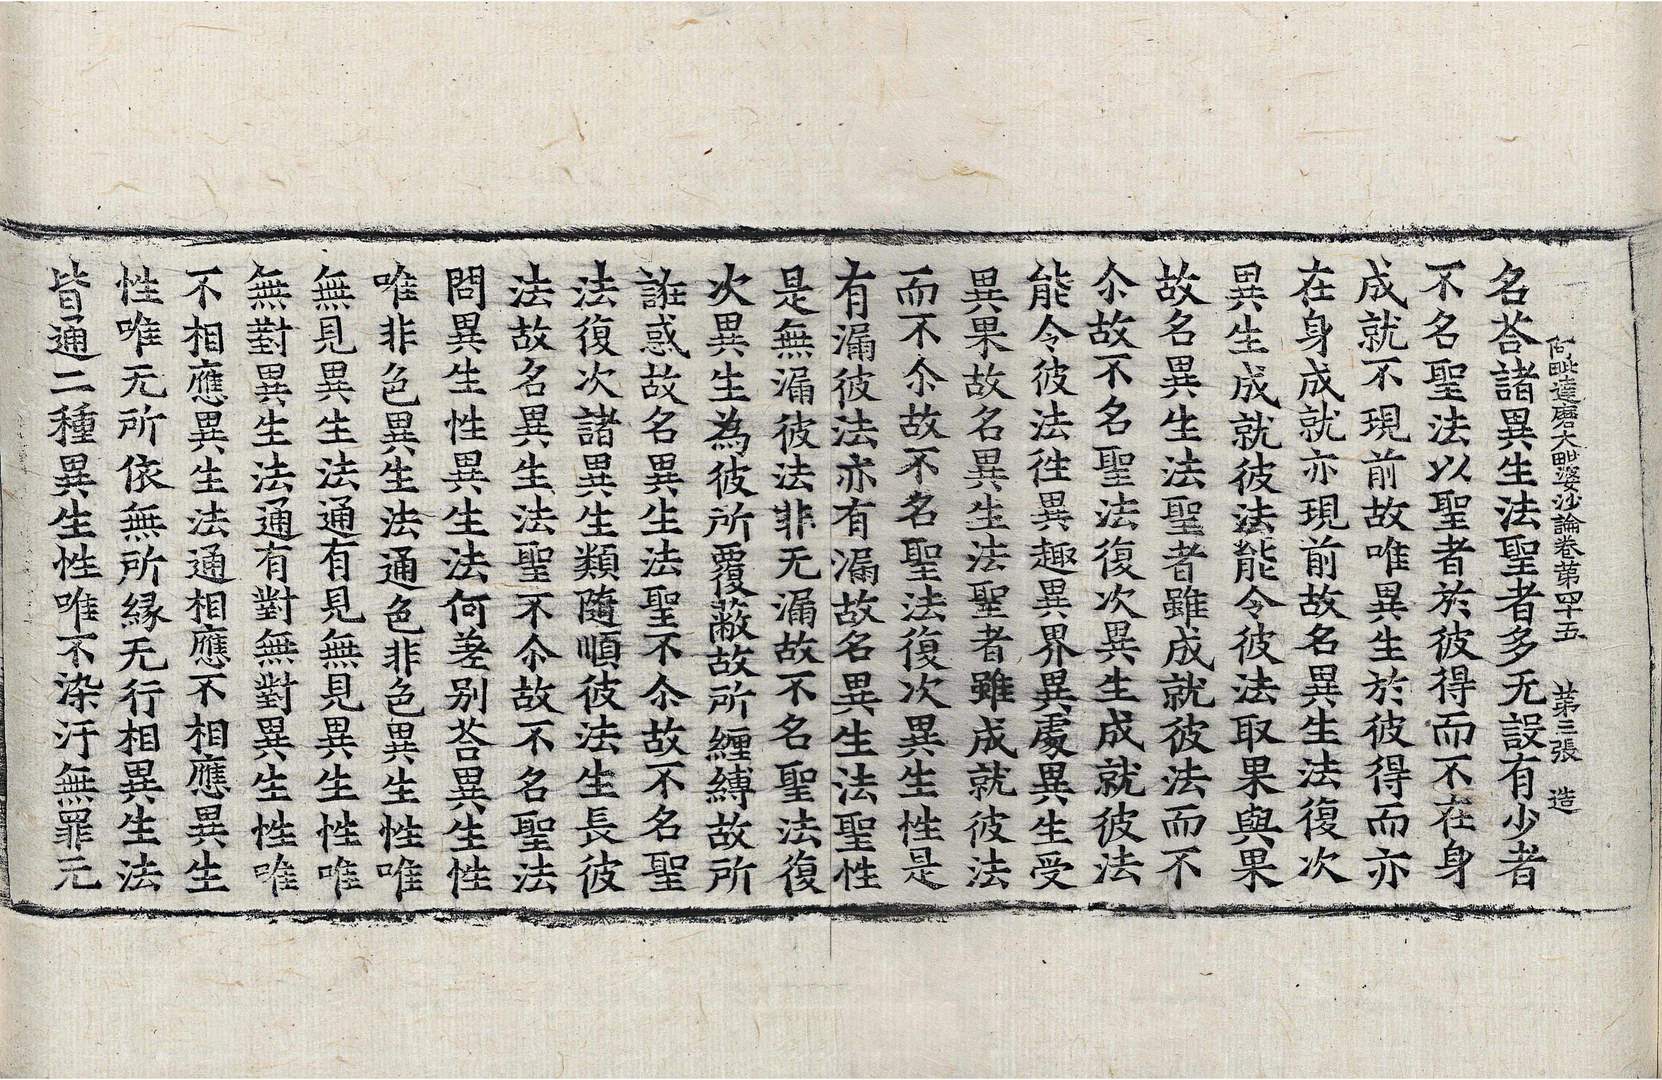 阿毗達磨大毗婆沙論卷苐四十五 苐三張 造
名荅諸異生法聖者多无設有少者
不名聖法以聖者於彼得而不在身
成就不現前故唯異生於彼得而亦
在身成就亦現前故名異生法復次
異生成就彼法能令彼法取果與果
故名異生法聖者雖成就彼法而不
尒故不名聖法復次異生成就彼法
能令彼法徃異趣異界異處異生受
異果故名異生法聖者雖成就彼法
而不尒故不名聖法復次異生性是
有漏彼法亦有漏故名異生法聖性
是無漏彼法非无漏故不名聖法復
次異生為彼所覆蔽故所纏縛故所
誑惑故名異生法聖不尒故不名聖
法復次諸異生類隨順彼法生長彼
法故名異生法聖不尒故不名聖法
問異生性異生法何差別荅異生性
唯非色異生法通色非色異生性唯
無見異生法通有見無見異生性唯
無對異生法通有對無對異生性唯
不相應異生法通相應不相應異生
性唯无所依無所緣无行相異生法
皆通二種異生性唯不染汙無罪无